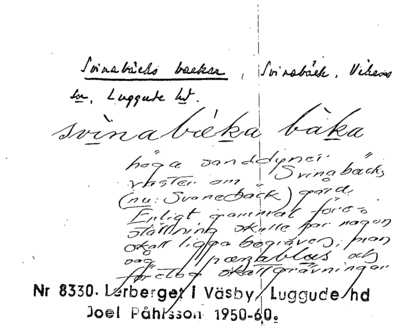 Svinabäcks backar, Svinabäck, Vikens
sn, Luggude hd.
svìnabɛ̀ka bàka
höga sanddyner
väster om Svinabäcks
(nu: Svanebäck) gård.
Enligt gammal före-
ställning skulle här någon
skatt ligga begraven, man
såg pænablɑs och
företog skattgrävningar
Nr 8330. Lerberget i Väsby, Luggude hd
Joel Påhlsson 1950-60.